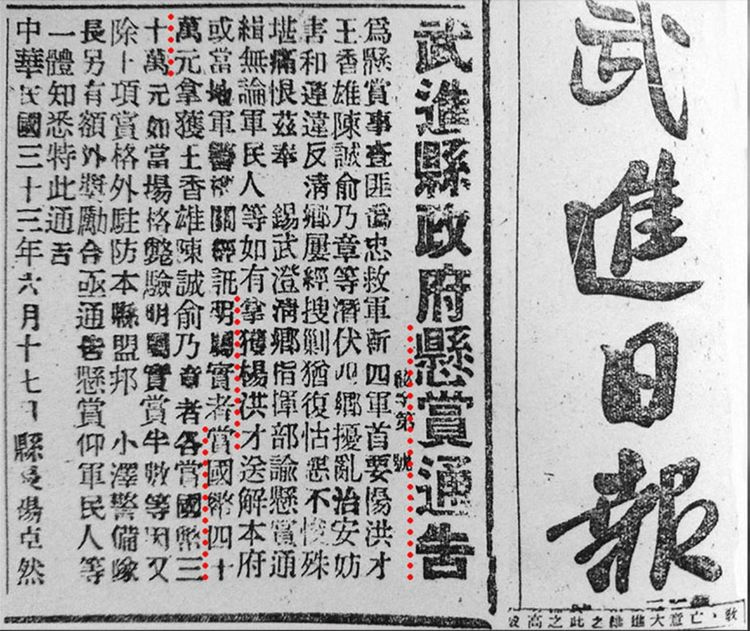 武進日報
武進縣政府懸賞通告
字第 號
為懸賞事查匪偽忠救軍新四軍首要楊洪才
王香雄陳誠俞乃章等潛伏四鄉擾亂治安妨
害和運違反淸鄉屢經搜剿猶復怙惡不悛殊
堪痛恨茲奉 錫武澄淸鄉指揮部諭懸賞通
緝無論軍民人等如有拿獲楊洪才送解本府
或當地軍警機關經訊明屬實者賞國幣四十
萬元拿獲王香雄陳誠俞乃章者各賞國幣三
十萬元如當場格斃驗明屬實賞半數等因又
除上項賞格外駐防本縣盟邦 小澤警備隊
長另有額外獎勵合亟通告懸賞仰軍民人等
一體知悉特此通告
中華民國三十三年六月十七日 縣長楊卓然